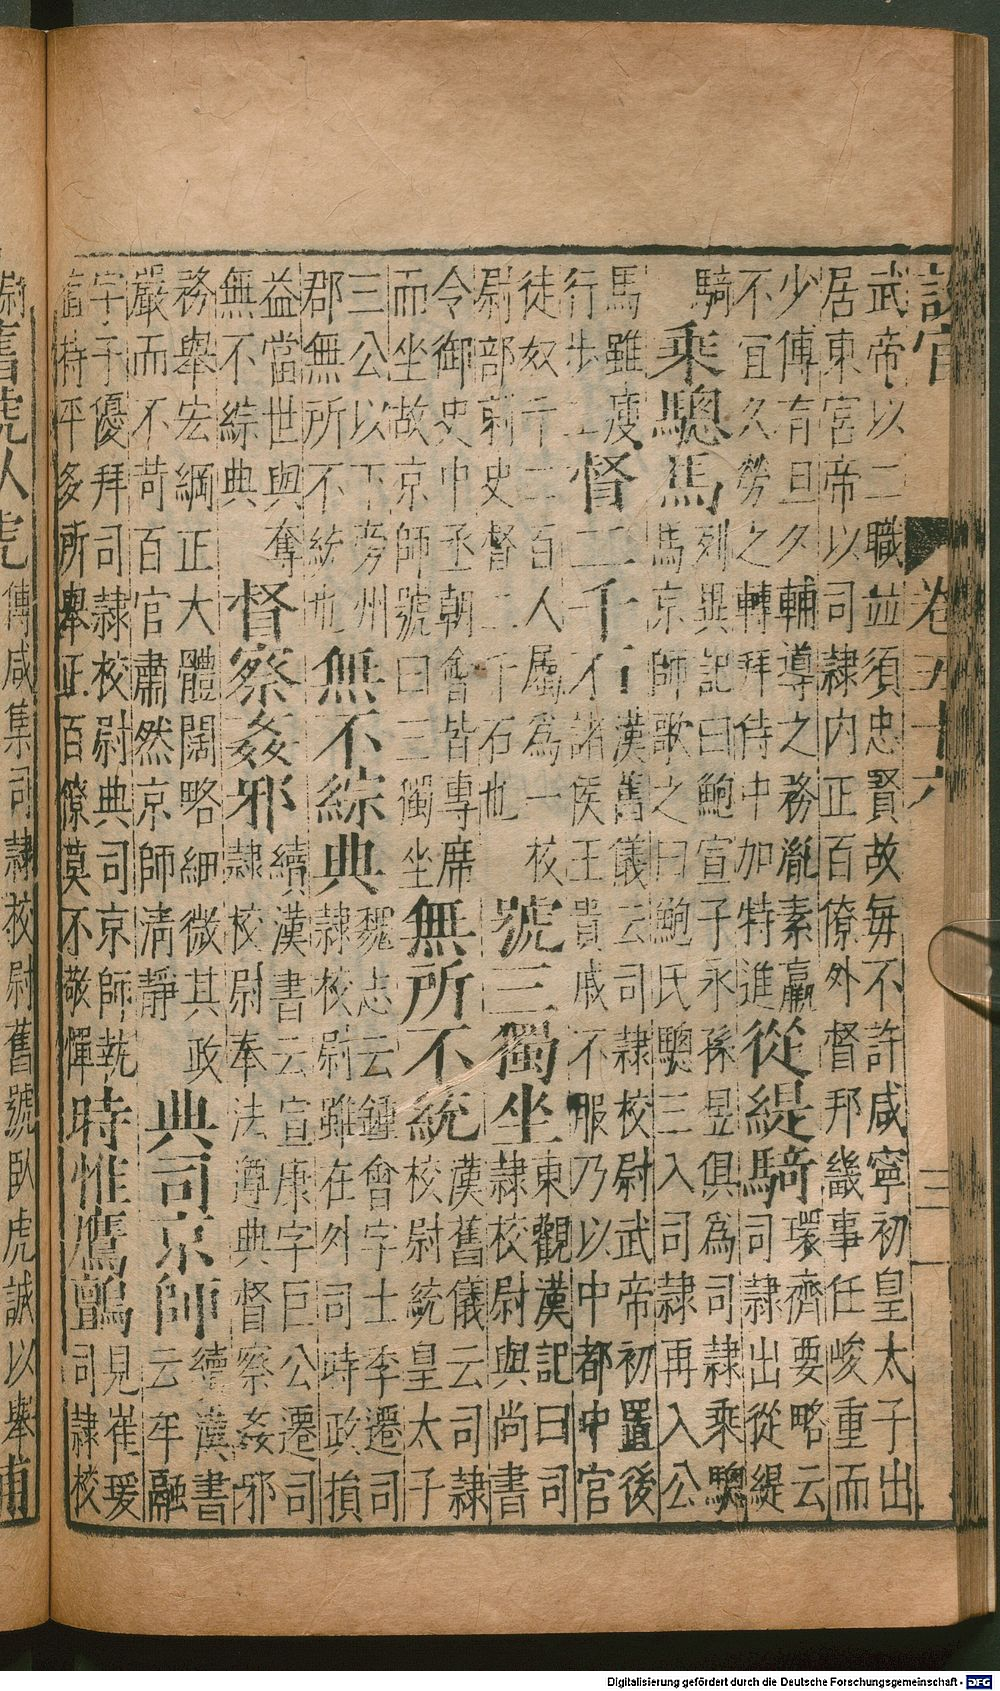 設官 卷五十六 三一
武帝以二職並須忠賢故毎不許咸寧初皇太子出
居東宮帝以司隷内正百僚外督邦畿事任峻重而
少傅有旦久輔導之務胤素羸
不宜久勞之轉拜侍中加特進
從緹騎
環濟要略云
司隷出從緹
騎
乘驄馬
列異記曰鮑宣子永孫昱俱為司隷乘驄
馬京師歌之曰鮑氏驄三入司隷再入公
馬雖疲
行步工
督二千石
漢舊儀云司隷校尉武帝初置後
諸侯王貴戚不服乃以中都中官
徒奴千二百人屬為一校
尉部刺史督二千石也
號三獨坐
東觀漢記曰司
隷校尉與尚書
令御史中丞朝會皆專席
而坐故京師號曰三獨坐
無所不統
漢舊儀云司隷
校尉統皇太子
三公以下旁州
郡無所不統也
無不綜典
魏志云鍾會字士季遷司
隷校尉雖在外司時政損
益當世與奪
無不綜典
督察姦邪
續漢書云宣康字巨公遷司
隷校尉奉法遵典督察姦邪
務舉宏綱正大體闊略細微其政
嚴而不苛百官肅然京師淸靜
典司京師
續漢書
云牟融
字子優拜司隷校尉典司京師執
憲持平多所舉正百僚莫不敬憚
時惟鷹鸇
見崔瑗
司隷校
舊號臥虎
傅咸集司隷校尉舊號臥虎誠以舉
Digitalisierung gefördert durch die Deutsche Forschungsgemeinschaft - DFG